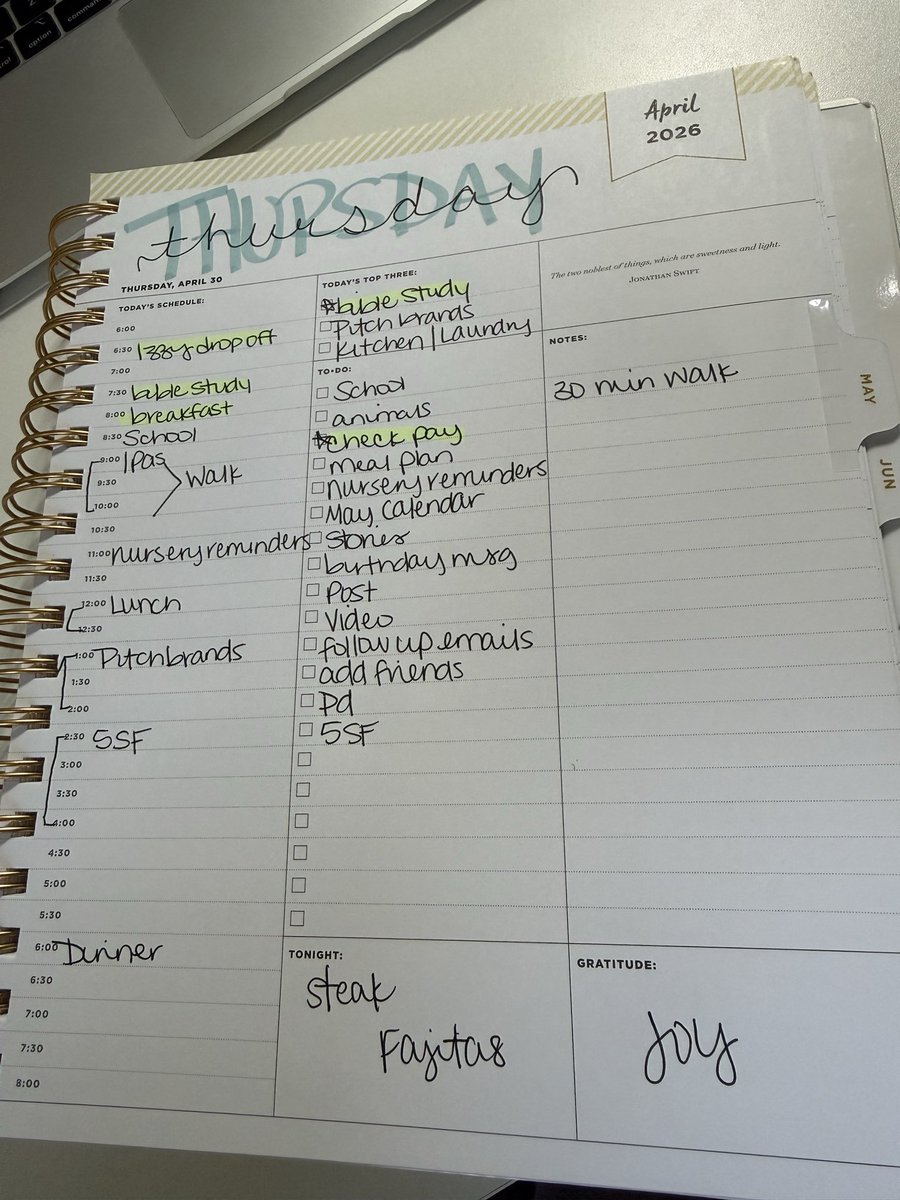 option
April
2026
THURSDAY
thursday
THURSDAY, APRIL 30
TODAY'S SCHEDULE:
6:00
6:30 Izzy drop off
7:00
7:30 bible study
8:00 breakfast
8:30 School
9:00 Ipas
9:30 Walk
10:00
10:30
11:00 nursery reminders
11:30
12:00 Lunch
12:30
1:00 Pitch brands
1:30
2:00
2:30 5SF
3:00
3:30
4:00
4:30
5:00
5:30
6:00 Dinner
6:30
7:00
7:30
8:00
TODAY'S TOP THREE:
bible study
Pitch brands
Kitchen/Laundry
TO-DO:
School
animals
check pay
meal plan
nursery reminders
May calendar
Stories
birthday msg
Post
Video
follow up emails
add friends
Pd
5SF
TONIGHT:
steak
Fajitas
The two noblest of things, which are sweetness and light.
JONATHAN SWIFT
NOTES:
30 min walk
GRATITUDE:
Joy
MAY
JUN